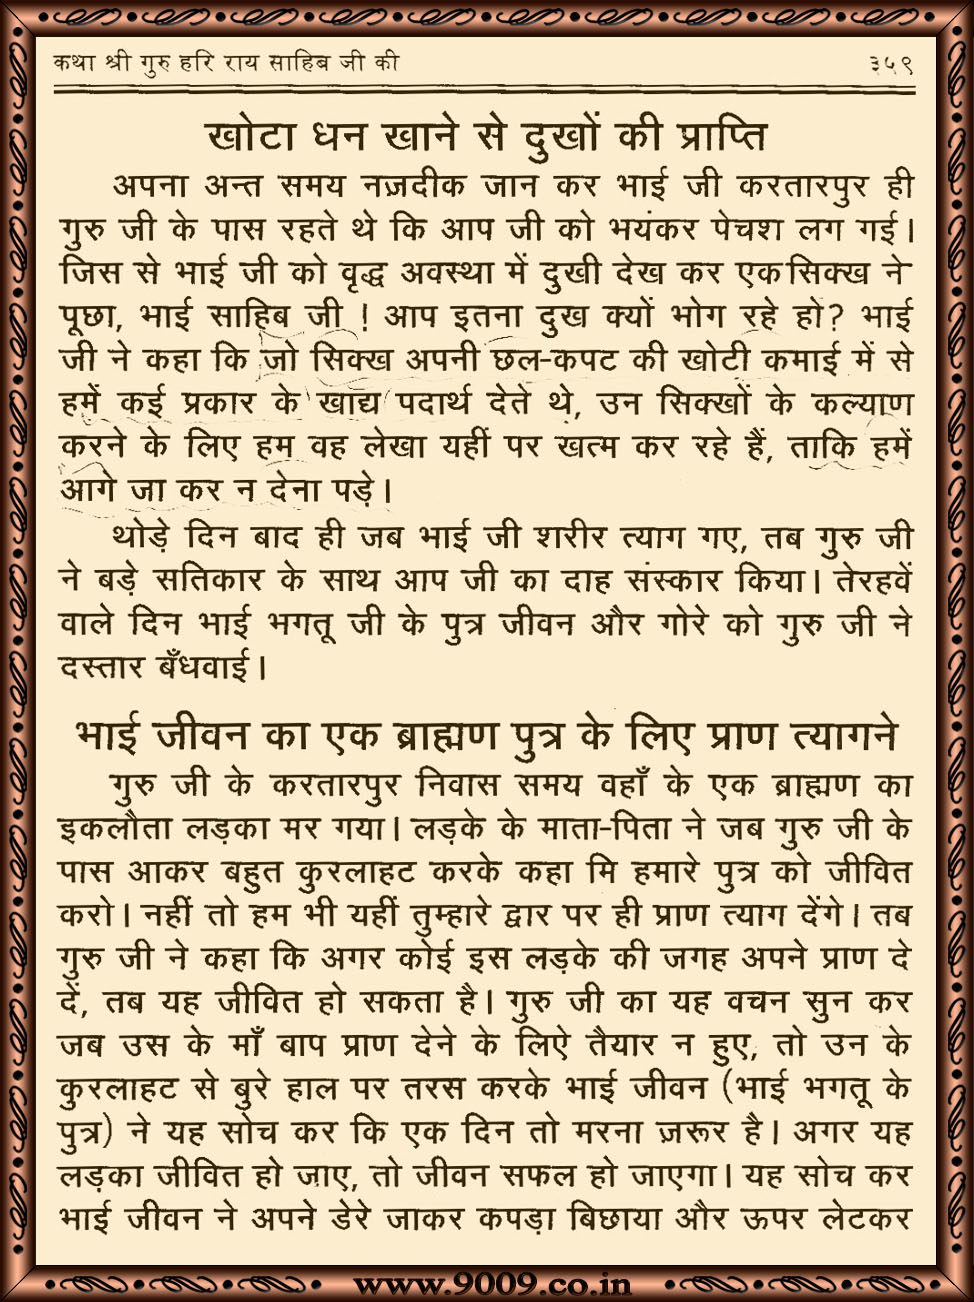 कथा श्री गुरु हरि राय साहिब जी की ३५९
खोटा धन खाने से दुखों की प्राप्ति
अपना अन्त समय नज़दीक जान कर भाई जी करतारपुर ही
गुरु जी के पास रहते थे कि आप जी को भयंकर पेचश लग गई।
जिस से भाई जी को वृद्ध अवस्था में दुखी देख कर एक सिक्ख ने
पूछा, भाई साहिब जी ! आप इतना दुख क्यों भोग रहे हो? भाई
जी ने कहा कि जो सिक्ख अपनी छल-कपट की खोटी कमाई में से
हमें कई प्रकार के खाद्य पदार्थ देते थे, उन सिक्खों के कल्याण
करने के लिए हम वह लेखा यहीं पर खत्म कर रहे हैं, ताकि हमें
आगे जा कर न देना पड़े।
थोड़े दिन बाद ही जब भाई जी शरीर त्याग गए, तब गुरु जी
ने बड़े सतिकार के साथ आप जी का दाह संस्कार किया। तेरहवें
वाले दिन भाई भगतू जी के पुत्र जीवन और गोरे को गुरु जी ने
दस्तार बँधवाई।
भाई जीवन का एक ब्राह्मण पुत्र के लिए प्राण त्यागने
गुरु जी के करतारपुर निवास समय वहाँ के एक ब्राह्मण का
इकलौता लड़का मर गया। लड़के के माता-पिता ने जब गुरु जी के
पास आकर बहुत कुरलाहट करके कहा मि हमारे पुत्र को जीवित
करो। नहीं तो हम भी यहीं तुम्हारे द्वार पर ही प्राण त्याग देंगे। तब
गुरु जी ने कहा कि अगर कोई इस लड़के की जगह अपने प्राण दे
दें, तब यह जीवित हो सकता है। गुरु जी का यह वचन सुन कर
जब उस के माँ बाप प्राण देने के लिऐ तैयार न हुए, तो उन के
कुरलाहट से बुरे हाल पर तरस करके भाई जीवन (भाई भगतू के
पुत्र) ने यह सोच कर कि एक दिन तो मरना ज़रूर है। अगर यह
लड़का जीवित हो जाए, तो जीवन सफल हो जाएगा। यह सोच कर
भाई जीवन ने अपने डेरे जाकर कपड़ा बिछाया और ऊपर लेटकर
www.9009.co.in